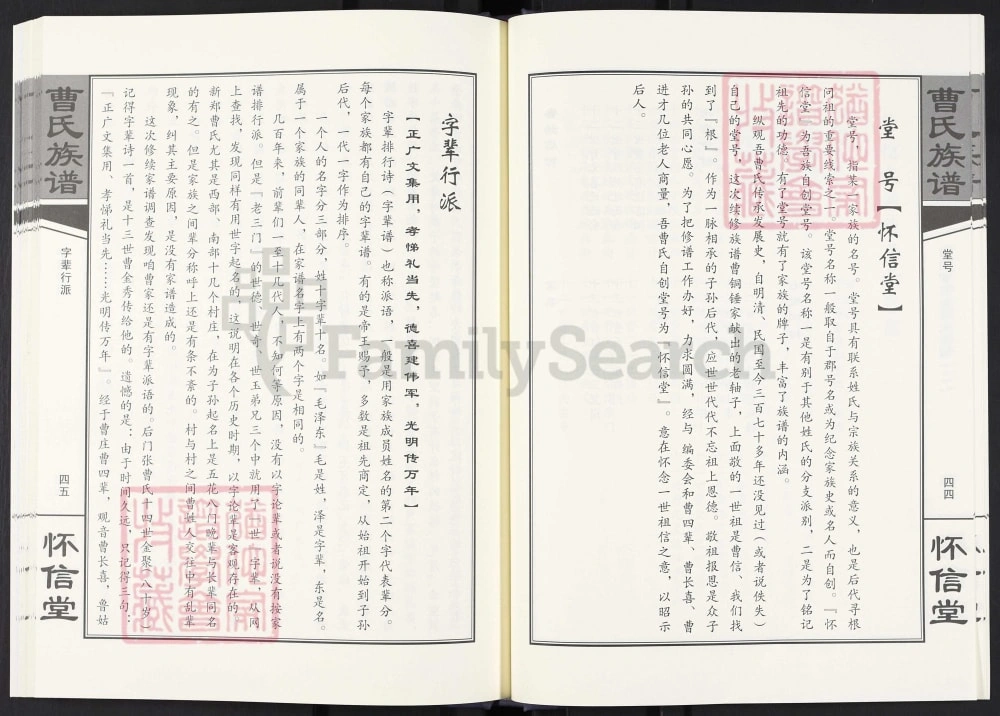 曹氏族谱
堂号
四四
怀信堂
堂 号【怀信堂】
堂号，指某一家族的名号。堂号具有联系姓氏与宗族关系的意义，也是后代寻根
问祖的重要线索之一。堂号名称一般取自于郡号名或为纪念家族史或名人而自创。『怀
信堂』为吾族自创堂号。该堂号名称一是有别于其他姓氏的分支派别，二是为了铭记
祖先的功德，有了堂号就有了家族的牌子，丰富了族谱的内涵。
纵观吾曹氏传承发展史，自明清、民国至今三百七十多年还没见过（或者说佚失）
自己的堂号，这次续修族谱曹铜锤家献出的老轴子，上面敬的一世祖是曹信、我们找
到了『根』。作为一脉相承的子孙后代，应世世代代不忘祖上恩德。敬祖报恩是众子
孙的共同心愿。为了把修谱工作办好，力求圆满，经与 编委会和曹四辈、曹长喜、曹
进才几位老人商量，吾曹氏自创堂号为『怀信堂』。意在怀念一世祖信之意，以昭示
后人。
字辈行派
【正广文集用，孝悌礼当先，德喜建伟军，光明传万年】
字辈排行诗（字辈谱）也称派语，一般是用家族成员姓名的第二个字代表辈分。
每个家族都有自己的字辈谱。有的是帝王赐予，多数是祖先商定，从始祖开始到子孙
后代，一代一字作为排序。
一个人的名字分三部分，姓十字辈十名。如『毛泽东』毛是姓，泽是字辈，东是名。
属于一个家族的同辈人，在家谱名字上有两个字是相同的。
几百年来，前辈们一至十几代人，不知何等原因，没有以字论辈或者说没有按家
谱排行派。但是『老三门』的世德、世奇、世玉弟兄三个中就用了『世』字辈，从网
上查找，发现同样有用世字起名的，这说明在各个历史时期，以字论辈是客观存在的。
新郑曹氏尤其是西部、南部十几个村庄，在为子孙起名上是五花八门晚辈与长辈同名
的有之。但是家族之间辈分称呼上还是有条不紊的。村与村之间曹姓人交往中有乱辈
现象，纠其主要原因，是没有家谱造成的。
这次修续家谱调查发现咱曹家还是有字辈派语的。后门张曹氏十四世金聚（八十岁）
记得字辈诗一首，是十三世曹金秀传给他的。遗憾的是：由于时间久远，只记得三句：
『正广文集用、孝悌礼当先……光明传万年』。经于曹庄曹四辈，观音曹长喜，鲁姑
曹氏族谱
字辈行派
四五
怀信堂
FamilySearch